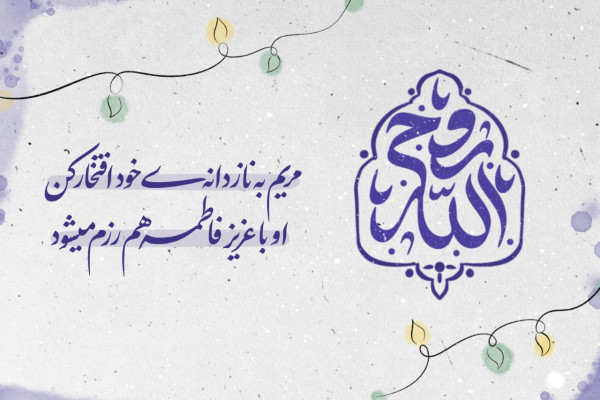 روح الله
مریم به نازدانه ی خود افتخار کن
او با عزیز فاطمه هم رزم میشود